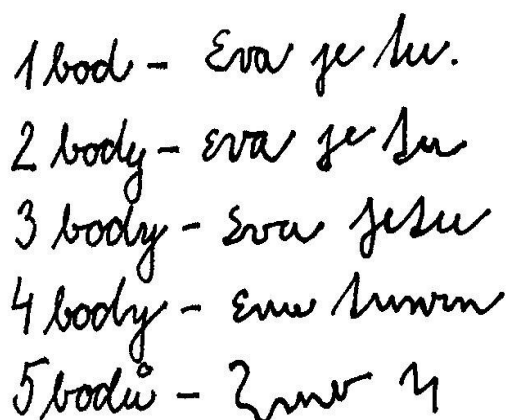 1 bod - Eva je tu.
2 body - eva je tu
3 body - Eva jetu
4 body -
5 bodů -